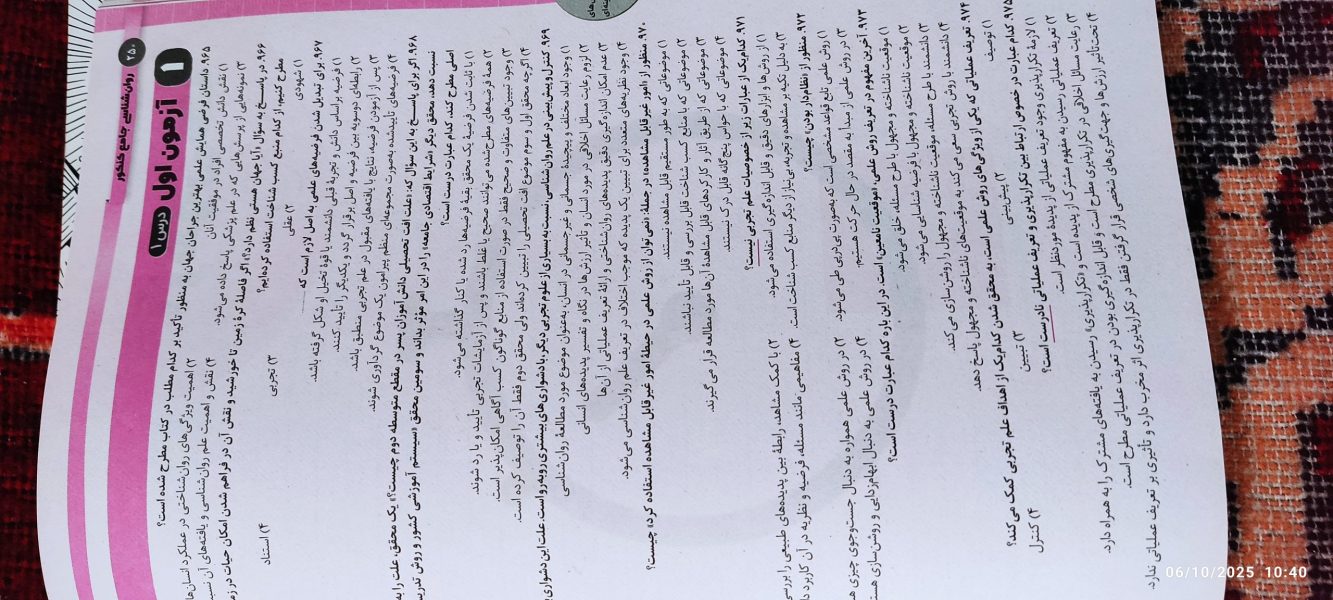 ۲۵۰
روان‌شناسی جامع کنکور
۱
آزمون اول
درس ۱
۹۶۵. داستان فرضی همایش علمی بهترین جراحان جهان به منظور تأکید بر کدام مطلب در کتاب مطرح شده است؟
۱) نقش دانش تخصصی افراد در موفقیت آنان
۲) اهمیت ویژگی‌های روان‌شناختی در عملکرد انسان‌ها
۳) نمونه‌هایی از پرسش‌هایی که در علم پزشکی پاسخ داده می‌شود.
۴) نقش و اهمیت علم روان‌شناسی و یافته‌های آن
۹۶۶. در پاسخ به سؤال «آیا جهان هستی نظم دارد؟» اگر فاصلهٔ کرهٔ زمین تا خورشید و نقش آن در فراهم شدن امکان حیات در
مطرح کنیم، از کدام منبع کسب شناخت استفاده کرده‌ایم؟
۱) شهودی
۲) عقلی
۳) تجربی
۴) استناد
۹۶۷. برای تبدیل شدن فرضیه‌های علمی به اصل لازم است که
۱) فرضیه براساس دانش و تجربهٔ قبلی دانشمند یا قوهٔ تخیل او شکل گرفته باشد.
۲) رابطه‌ای دوسویه بین فرضیه و اصل برقرار گردد و یکدیگر را تأیید کنند.
۳) پس از آزمودن فرضیه، نتایج با یافته‌های مقبول در علم تجربی منطبق باشد.
۴) فرضیه‌های تأییدشده به‌صورت مجموعه‌ای منظم پیرامون یک موضوع گردآوری شوند.
۹۶۸. اگر برای پاسخ به این سؤال که: «علت افت تحصیلی دانش‌آموزان پسر در مقطع متوسطه دوم چیست؟» یک محقق، علت را به
نسبت دهد، محقق دیگر «شرایط اقتصادی جامعه» را در این امر مؤثر بداند و سومین محقق «سیستم آموزشی کشور و روش
اصلی مطرح کند، کدام عبارت درست است؟
۱) با ثابت شدن فرضیه یک محقق بقیهٔ فرضیه‌ها رد شده یا کنار گذاشته می‌شود.
۲) همهٔ فرضیه‌های مطرح‌شده می‌توانند صحیح یا غلط باشند و پس از آزمایشات تجربی تأیید و یا رد شوند.
۳) وجود تبیین‌های متفاوت و صحیح فقط در صورت استفاده از منابع گوناگون کسب آگاهی امکان‌پذیر است.
۴) اگرچه محقق اول و سوم موضوع افت تحصیلی را تبیین کرده‌اند ولی محقق دوم فقط آن را توصیف کرده است.
۹۶۹. کنترل و پیش‌بینی در علم روان‌شناسی نسبت به بسیاری از علوم تجربی دیگر با دشواری‌های بیشتری روبه‌رو است. علت این دشواری
۱) وجود ابعاد مختلف و پیچیدهٔ جسمانی و غیرجسمانی در انسان به‌عنوان موضوع مورد مطالعهٔ روان‌شناسی
۲) لزوم رعایت مسائل اخلاقی در مورد انسان و تأثیر ارزش‌ها در نگاه و تفسیر پدیده‌های انسانی
۳) عدم امکان اندازه‌گیری دقیق پدیده‌های روان‌شناختی و ارائهٔ تعریف عملیاتی از آن‌ها
۴) وجود نظریه‌های متعدد برای تبیین یک پدیده که موجب اختلاف در تعریف علم روان‌شناسی می‌شود.
۹۷۰. منظور از «امور غیرقابل مشاهده» در جملهٔ «نمی‌توان از روش علمی در حیطهٔ امور غیرقابل مشاهده استفاده کرد» چیست؟
۱) موضوعاتی که به طور مستقیم قابل مشاهده نیستند.
۲) موضوعاتی که با منابع کسب شناخت قابل بررسی و قابل تأیید نباشند.
۳) موضوعاتی که از طریق آثار و کارکردهای قابل مشاهدهٔ آن‌ها مورد مطالعه قرار می‌گیرند.
۴) موضوعاتی که با حواس پنج‌گانه قابل درک نیستند.
۹۷۱. کدام‌یک از عبارات زیر از خصوصیات علم تجربی نیست؟
۱) از روش‌ها و ابزارهای دقیق و قابل اندازه‌گیری استفاده می‌شود.
۲) با کمک مشاهده، رابطهٔ بین پدیده‌های طبیعی را
۳) به دلیل تکیه بر مشاهده و تجربه، بی‌نیاز از دیگر منابع کسب شناخت است.
۴) مفاهیمی مانند مسئله، فرضیه و نظریه در آن کاربرد
۹۷۲. منظور از «نظام‌دار بودن» چیست؟
۱) روش علمی تابع قواعد مشخصی است که به‌صورت پی‌درپی طی می‌شود.
۲) در روش علمی همواره به دنبال جست‌وجوی چیزی
۳) در روش علمی از مبدأ به مقصد در حال حرکت هستیم.
۴) در روش علمی به دنبال ابهام‌زدایی و روشن‌سازی
۹۷۳. آخرین مفهوم در تعریف روش علمی، «موقعیت نامعین» است. در این باره کدام عبارت درست است؟
۱) موقعیت ناشناخته و مجهول با طرح مسئله، خلق می‌شود.
۲) موقعیت ناشناخته و مجهول با فرضیه شناسایی می‌شود.
۳) دانشمند با طرح مسئله، موقعیت ناشناخته و مجهول را روشن‌سازی می‌کند.
۴) دانشمند با روش تجربی سعی می‌کند به موقعیت‌های ناشناخته و مجهول پاسخ دهد.
۹۷۴. تعریف عملیاتی که یکی از ویژگی‌های روش علمی است، به محقق شدن کدام‌یک از اهداف علم تجربی کمک می‌کند؟
۱) توصیف
۲) پیش‌بینی
۳) تبیین
۴) کنترل
۹۷۵. کدام عبارت در خصوص ارتباط بین تکرارپذیری و تعریف عملیاتی نادرست است؟
۱) لازمهٔ تکرارپذیری وجود تعریف عملیاتی از پدیدهٔ موردنظر است.
۲) تعریف عملیاتی رسیدن به مفهوم مشترک از پدیده است و «تکرارپذیری» رسیدن به یافته‌های مشترک را به همراه دارد.
۳) رعایت مسائل اخلاقی در تکرارپذیری مطرح است و قابل اندازه‌گیری بودن در تعریف عملیاتی مطرح است.
۴) تحت‌تأثیر ارزش‌ها و جهت‌گیری‌های شخصی قرار گرفتن فقط در تکرارپذیری اثر مخرب دارد و تأثیری بر تعریف عملیاتی ندارد.
06/10/2025 10:40